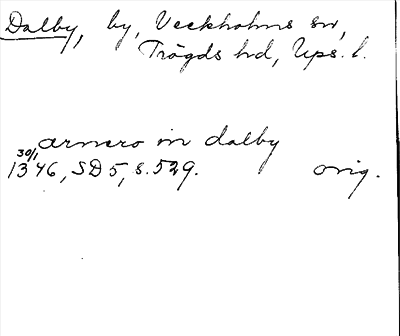 Dalby, by, Veckholms sn,
Trögds hd, Ups. l.
arnero in dalby
30/1
1346, SD 5, s. 529. orig.